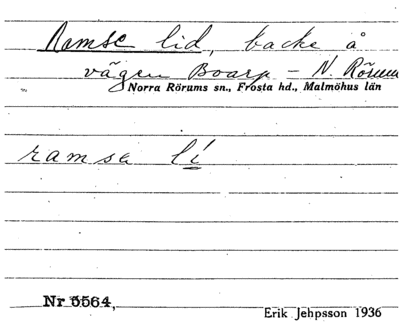 Ramse lid, backe å
vägen Boarp - N. Rörum
Norra Rörums sn., Frosta hd., Malmöhus län
ramsa lí
Nr 5564,
Erik Jehpsson 1936